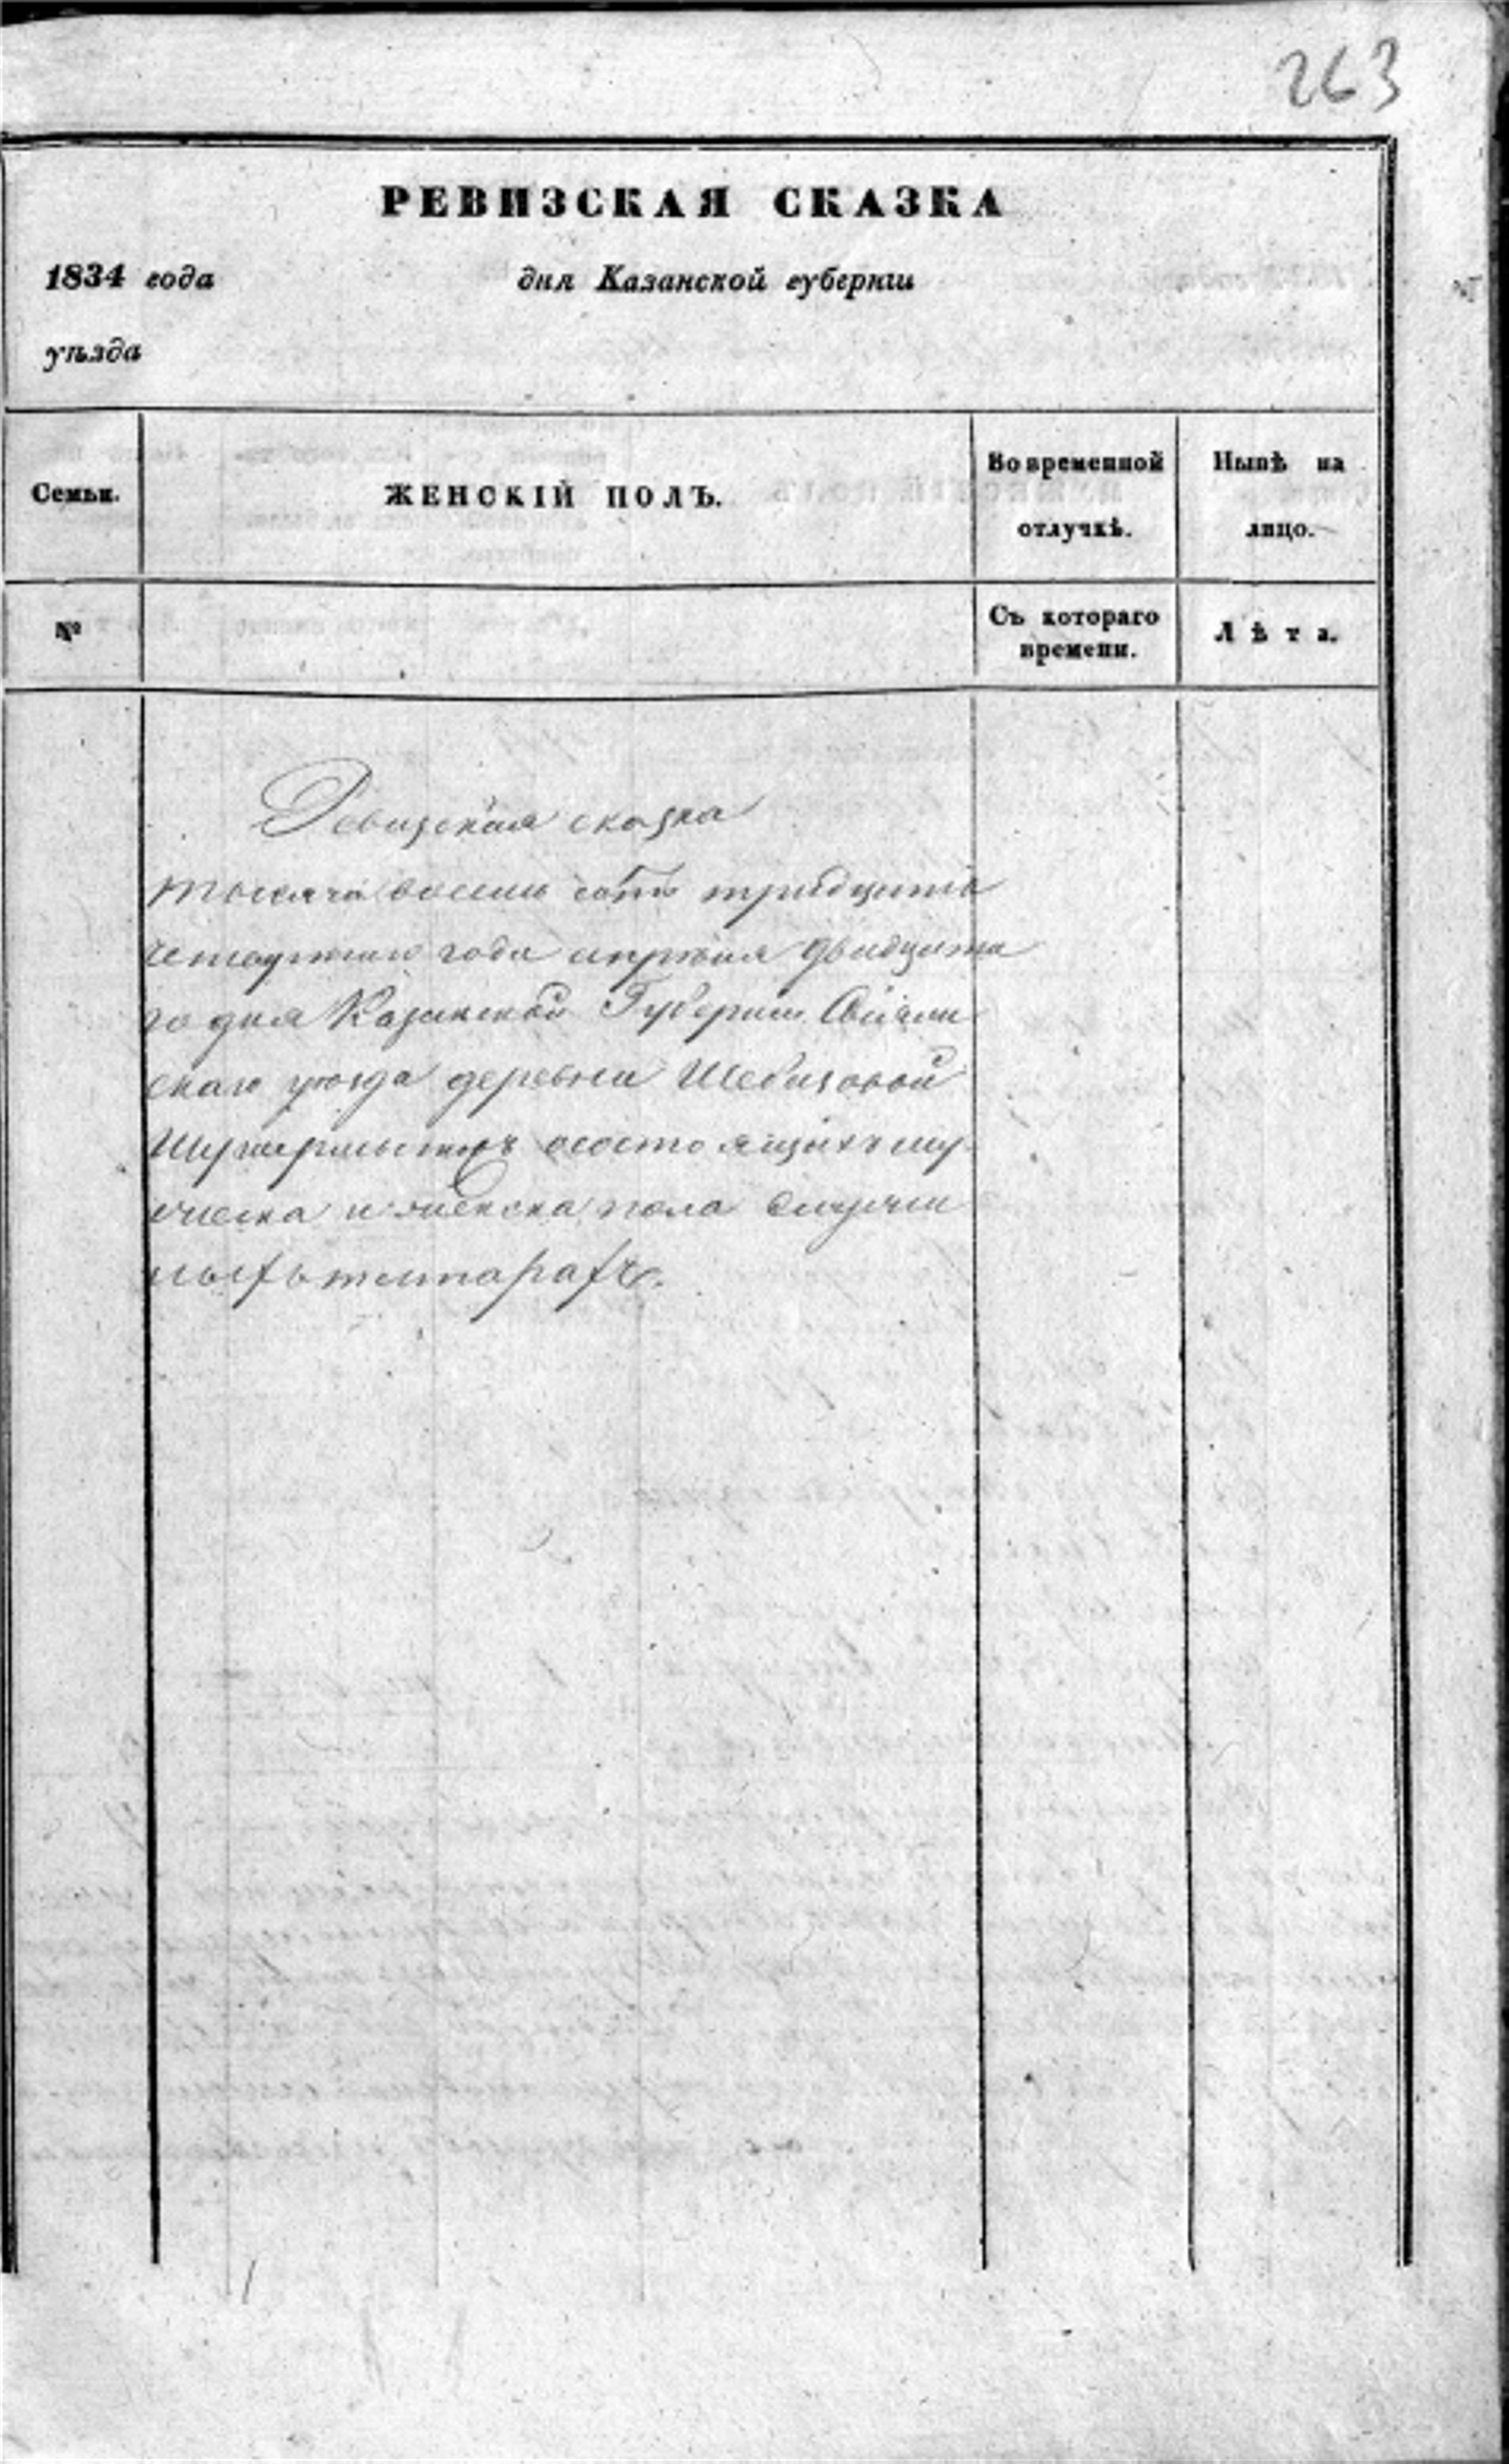 263
РЕВИЗСКАЯ СКАЗКА
1834 года дня Казанской губерніи
уѣзда
Семьи.
ЖЕНСКІЙ ПОЛЪ.
Во временной отлучкѣ.
Нынѣ на лицо.
№
Съ котораго времени.
Лѣта.
Ревизская сказка
тысяча восемь сотъ тридцать
четвертаго года апрѣля двадцата
го дня Казанской Губерніи Свіяж
скаго уѣзда деревни Шебизовой
о состоящихъ му
ческа и женска пола